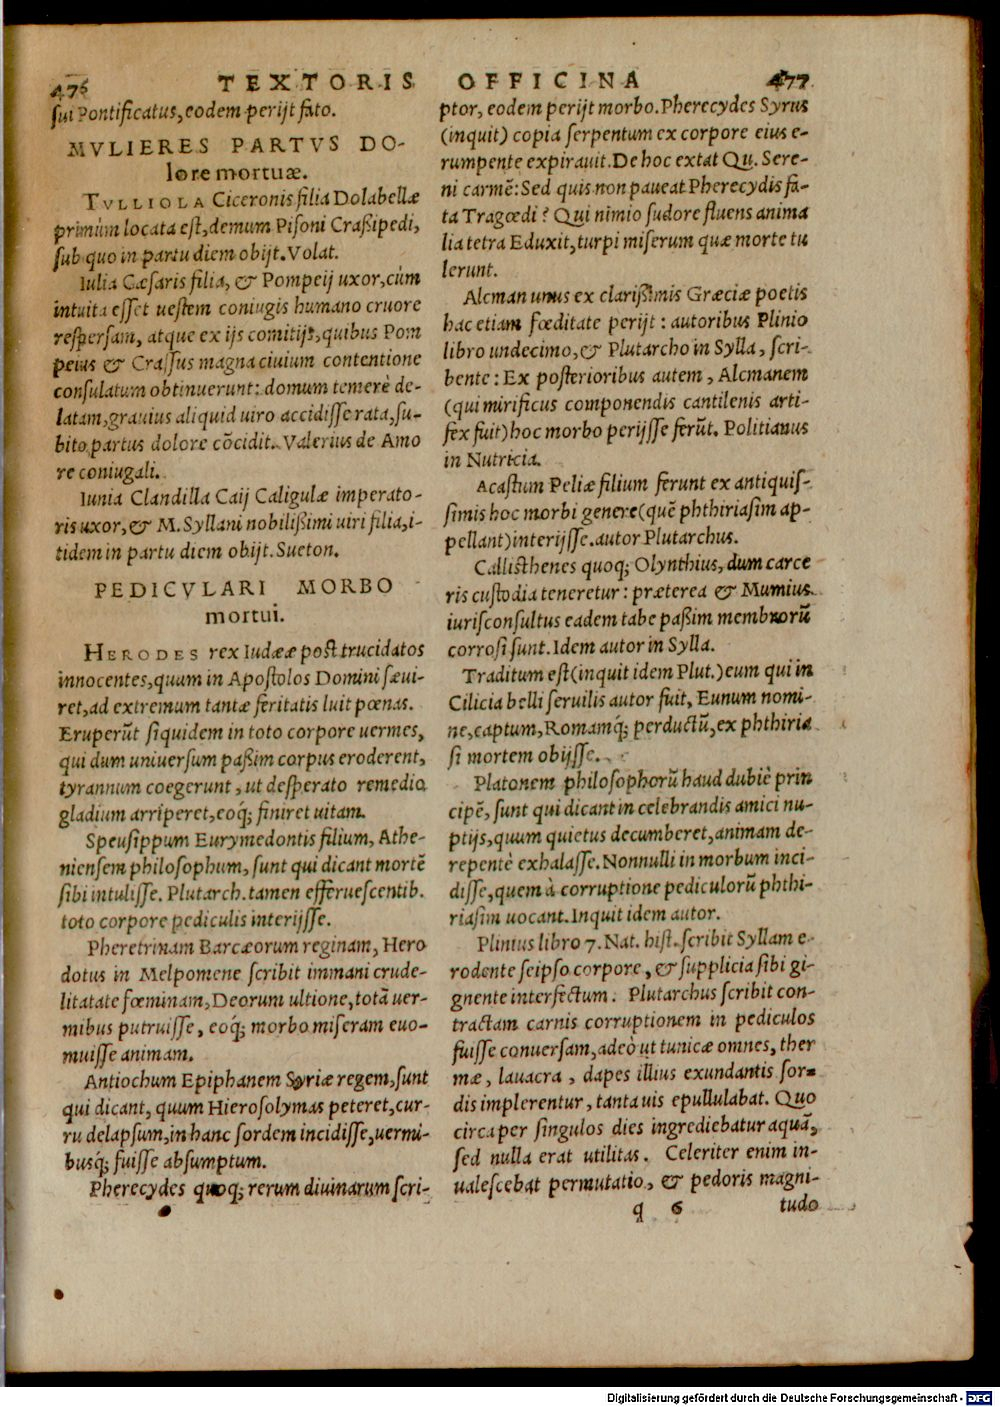 476 TEXTORIS OFFICINA 477
sui Pontificatus, eodem perijt fato.
MVLIERES PARTVS DO-
lore mortuæ.
TVLLIOLA Ciceronis filia Dolabellæ
primùm locata est, demum Pisoni Craßipedi,
sub quo in partu diem obijt. Volat.
Iulia Cæsaris filia, & Pompeij uxor, cùm
intuita esset uestem coniugis humano cruore
respersam, atque ex ijs comitijs, quibus Pom
peius & Crassus magna ciuium contentione
consulatum obtinuerunt: domum temerè de-
latam, grauius aliquid uiro accidisse rata, su-
bito partus dolore cõcidit. Valerius de Amo
re coniugali.
Iunia Clandilla Caij Caligulæ imperato-
ris uxor, & M. Syllani nobilißimi uiri filia, i-
tidem in partu diem obijt. Sueton.
PEDICVLARI MORBO
mortui.
HERODES rex Iudææ post trucidatos
innocentes, quum in Apostolos Domini sæui-
ret, ad extremum tantæ feritatis luit pœnas.
Eruperũt siquidem in toto corpore uermes,
qui dum uniuersum paßim corpus eroderent,
tyrannum coegerunt, ut desperato remedio
gladium arriperet, eoq́; finiret uitam.
Speusippum Eurymedontis filium, Athe-
niensem philosophum, sunt qui dicant mortẽ
sibi intulisse. Plutarch. tamen efferuescentib.
toto corpore pediculis interijsse.
Pheretrinam Barcæorum reginam, Hero
dotus in Melpomene scribit immani crude-
litatate fœminam, Deorum ultione, totã uer-
mibus putruisse, eoq́; morbo miseram euo-
muisse animam.
Antiochum Epiphanem Syriæ regem, sunt
qui dicant, quum Hierosolymas peteret, cur-
ru delapsum, in hanc sordem incidisse, uermi-
busq́; fuisse absumptum.
Pherecydes quoq; rerum diuinarum scri-
ptor, eodem perijt morbo. Pherecydes Syrus
(inquit) copia serpentum ex corpore eius e-
rumpente expirauit. De hoc extat Qu. Sere-
ni carmẽ: Sed quis non paueat Pherecydis fa-
ta Tragœdi? Qui nimio sudore fluens anima
lia tetra Eduxit, turpi miserum quæ morte tu
lerunt.
Alcman unus ex clarißimis Græciæ poetis
hac etiam fœditate perijt: autoribus Plinio
libro undecimo, & Plutarcho in Sylla, scri-
bente: Ex posterioribus autem, Alcmanem
(qui mirificus componendis cantilenis arti-
fex fuit) hoc morbo perijsse ferũt. Politianus
in Nutricia.
Acastum Peliæ filium ferunt ex antiquis-
simis hoc morbi genere (quẽ phthiriasim ap-
pellant) interijsse. autor Plutarchus.
Callisthenes quoq; Olynthius, dum carce
ris custodia teneretur: præterea & Mumius
iurisconsultus eadem tabe paßim membrorũ
corrosi sunt. Idem autor in Sylla.
Traditum est (inquit idem Plut.) eum qui in
Cilicia belli seruilis autor fuit, Eunum nomi-
ne, captum, Romamq́; perductũ, ex phthiria
si mortem obijsse.
Platonem philosophorũ haud dubiè prin
cipẽ, sunt qui dicant in celebrandis amici nu-
ptijs, quum quietus decumberet, animam de-
repentè exhalasse. Nonnulli in morbum inci-
disse, quem à corruptione pediculorũ phthi-
riasim uocant. Inquit idem autor.
Plinius libro 7. Nat. hist. scribit Syllam e-
rodente seipso corpore, & supplicia sibi gi-
gnente interfectum. Plutarchus scribit con-
tractam carnis corruptionem in pediculos
fuisse conuersam, adeò ut tunicæ omnes, ther
mæ, lauacra, dapes illius exundantis sor-
dis implerentur, tanta uis epullulabat. Quo
circa per singulos dies ingrediebatur aquã,
sed nulla erat utilitas. Celeriter enim in-
ualescebat permutatio, & pedoris magni-
q 6 tudo
Digitalisierung gefördert durch die Deutsche Forschungsgemeinschaft - DFG